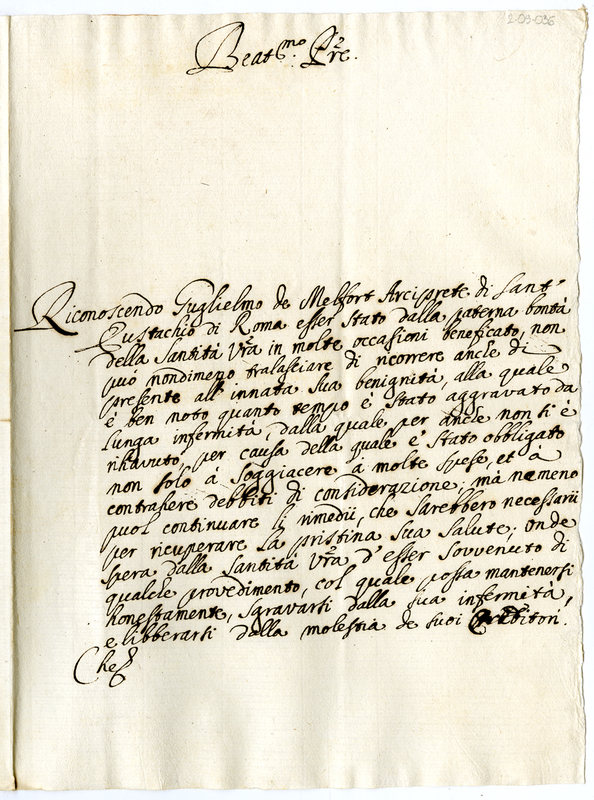 2-09-036
Beat.mo P.re.
Riconoscendo Guglielmo de Melfort Arciprete di Sant'
Eustachio di Roma esser stato dalla paterna bontà
della Santità Vra in molte occasioni beneficato, non
può nondimeno tralasciare di ricorrere anche di
presente all' innata sua benignità, alla quale
è ben noto quanto tempo è stato aggravato da
lunga infermità, dalla quale per anche non si è
rihavuto, per causa della quale è stato obbligato
non solo à soggiacere à molte spese, et à
contrahere debbiti di considerazione; mà nemeno
puol continuare li rimedii, che sarebbero necessarii
per ricuperare la pristina sua salute; onde
spera dalla Santità Vra d'esser sovvenuto di
qualche provedimento, col quale possa mantenersi
honestamente, sgravarsi dalla sua infermità,
e libberarsi dalla molestia de suoi Creditori.
Che